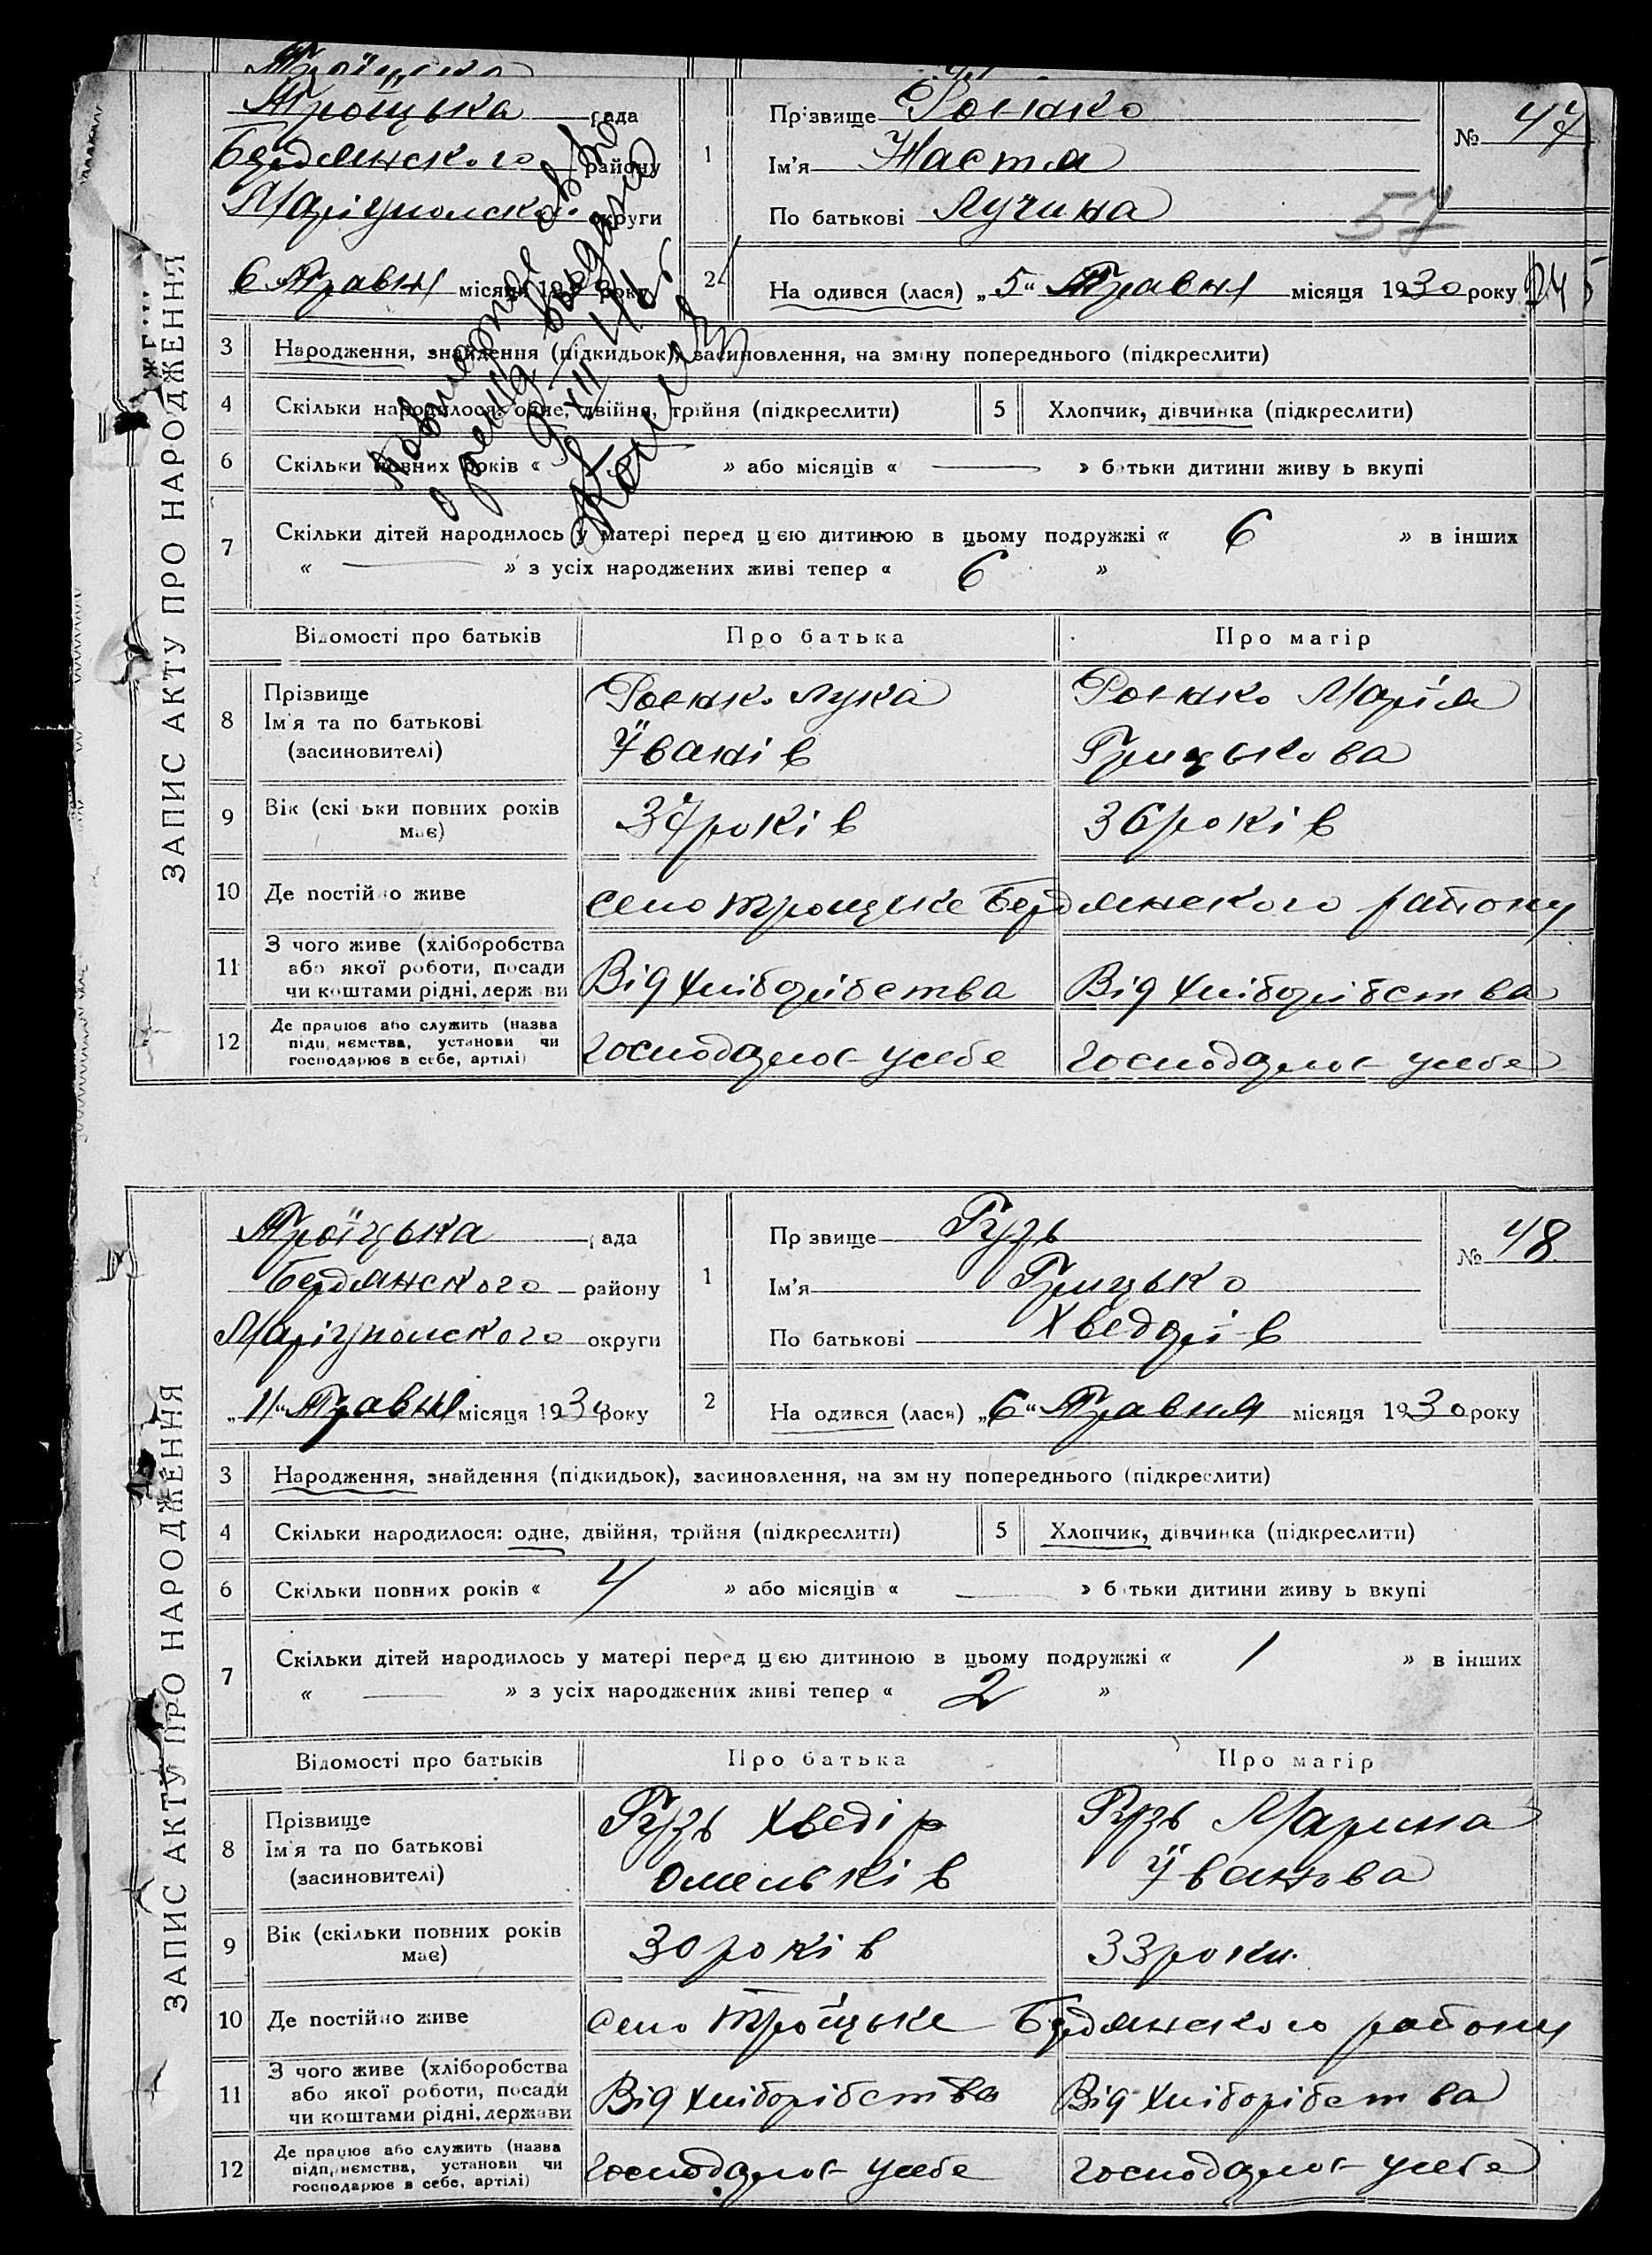 ЗАПИС АКТУ ПРО НАРОДЖЕННЯ
Троїцька рада
Бердянского району
Маріупольского округи
„6" Травня місяця 1930 року
1
Прізвище
Ім'я Настя
По батькові Лучина
№ 47
57
2
Народився (лася) „5" Травня місяця 1930 року
3 Народження, знайдення (підкидьок), засиновлення, на зміну попереднього (підкреслити)
4 Скільки народилося: одне, двійня, трійня (підкреслити)
5 Хлопчик, дівчинка (підкреслити)
6 Скільки повних років « » або місяців « — » батьки дитини живуть вкупі
7 Скільки дітей народилось у матері перед цією дитиною в цьому подружжі « 6 » в інших
« — » з усіх народжених живі тепер « 6 »
Відомості про батьків Про батька Про матір
8 Прізвище
Ім'я та по батькові
(засиновителі)
Лука
Їванів
Марія
Грицькова
9 Вік (скільки повних років має)
37 років
36 років
10 Де постійно живе
село Троицьке Бердянского району
11 З чого живе (хліборобства
або якої роботи, посади
чи коштами рідні, держави
Від хліборібства
Від хліборібства
12 Де працює або служить (назва
підприємства, установи чи
господарює в себе, артілі)
господарює усебе
господарює усебе
ЗАПИС АКТУ ПРО НАРОДЖЕННЯ
Троїцька рада
Бердянского району
Маріупольского округи
„11" Травня місяця 1930 року
1
Прізвище Гузь
Ім'я Грицько
По батькові Хведорів
№ 48
2
Народився (лася) „6" Травня місяця 1930 року
3 Народження, знайдення (підкидьок), засиновлення, на зміну попереднього (підкреслити)
4 Скільки народилося: одне, двійня, трійня (підкреслити)
5 Хлопчик, дівчинка (підкреслити)
6 Скільки повних років « 4 » або місяців « — » батьки дитини живуть вкупі
7 Скільки дітей народилось у матері перед цією дитиною в цьому подружжі « 1 » в інших
« — » з усіх народжених живі тепер « 2 »
Відомості про батьків Про батька Про матір
8 Прізвище
Ім'я та по батькові
(засиновителі)
Гузь Хведір
Омельків
Гузь Марина
Їванова
9 Вік (скільки повних років має)
30 років
33 роки.
10 Де постійно живе
село Троїцьке Бердянского району
11 З чого живе (хліборобства
або якої роботи, посади
чи коштами рідні, держави
Від хліборібства
Від хліборібства
12 Де працює або служить (назва
підприємства, установи чи
господарює в себе, артілі)
господарює усебе
господарює усебе